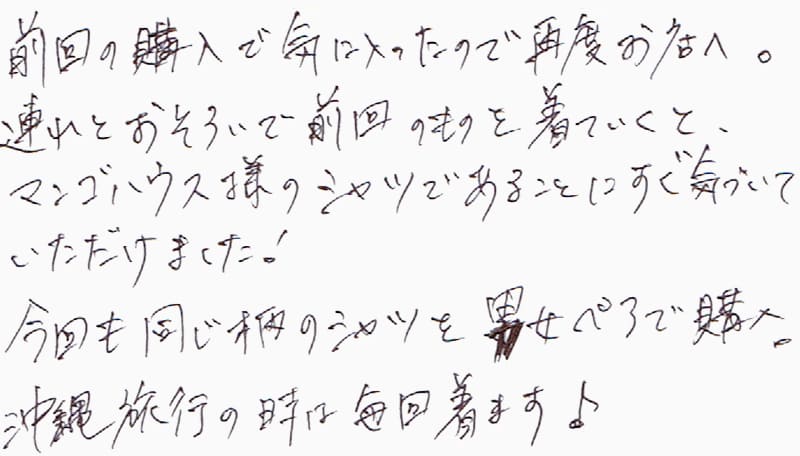 前回の購入で気に入ったので再度お店へ。
連れとおそろいで前回のものを着ていくと、
マンゴハウス様のシャツであることにすぐ気づいて
いただけました！
今回も同じ柄のシャツを男女ペアで購入。
沖縄旅行の時は毎回着ます♪